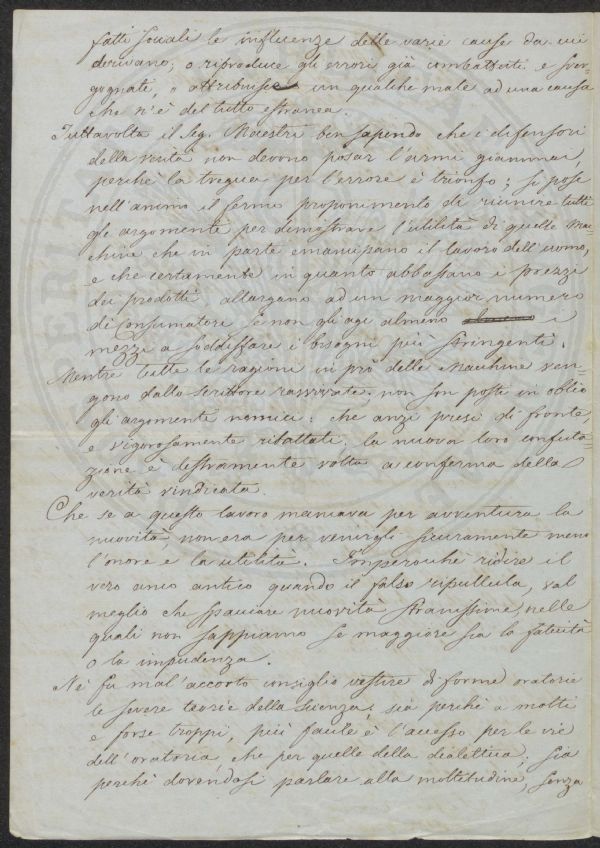 fatti sociali le influenze delle varie cause da cui
derivano; o riproduce gli errori già combattuti e sver-
gognati, o attribuisce un qualche male ad una causa
che n'è del tutto estranea.
Tuttavolta il Sig. Maestri ben sapendo che i difensori
della verità non devono posar l'armi giammai,
perchè la tregua per l'errore è trionfo; si pose
nell'animo il fermo proponimento di riunire tutti
gli argomenti per dimostrare l'utilità di quelle Mac-
chine che in parte emancipano il lavoro dell'uomo,
e che certamente in quanto abbassano i prezzi
dei prodotti, allargano ad un maggior numero
di Consumatori se non gli agi almeno i
mezzi a soddisfare i bisogni più stringenti.
Mentre tutte le ragioni in prò delle Macchine ven-
gono dallo Scrittore rassegnate, non son posti in oblio
gli argomenti nemici: che anzi presi di fronte,
e vigorosamente ribattuti, la nuova loro confuta-
zione è destramente volta a conferma della
verità vindicata.
Che se a questo lavoro mancava per avventura la
nuovità, non era per venirgli sicuramente meno
l'onore e la utilità. Imperocchè ridire il
vero anco antico quando il falso ripullula, val
meglio che spacciare nuovità stranissime, nelle
quali non sappiamo se maggiore sia la fatuità
o la impudenza.
Nè fu mal'accorto consiglio vestire di forme oratorie
le severe teorie della scienza, sia perchè a molti
e forse troppi, più facile è l'accesso per le vie
dell'oratoria, che per quelle della dialettica; sia
perchè dovendosi parlare alla moltitudine, senza